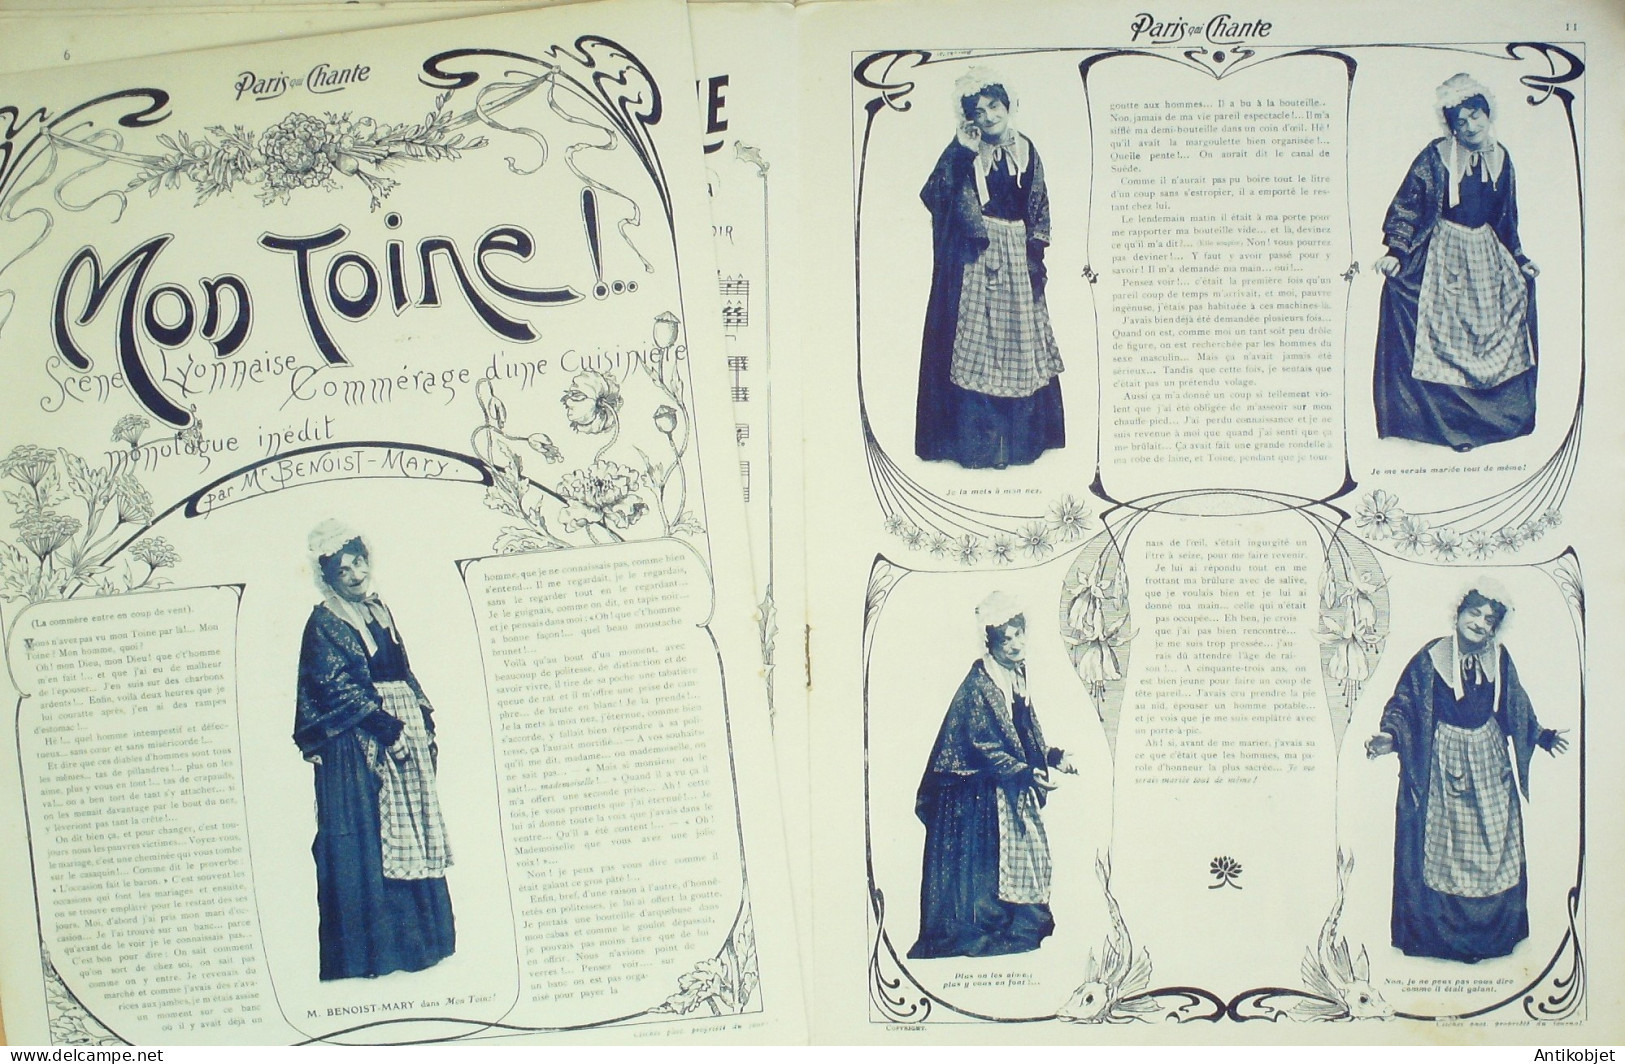 6
Paris qui Chante
Mon Toine!...
Scène Lyonnaise Commérage d'une Cuisinière
monologue inédit
par Mr BENOIST-MARY.
(La commère entre en coup de vent).
Vous n'avez pas vu mon Toine par là!... Mon
Toine? Mon homme, quoi?
Oh! mon Dieu, mon Dieu! que c't'homme
m'en fait!... et que j'ai eu de malheur
de l'épouser... J'en suis sur des charbons
ardents!... Enfin, voilà deux heures que je
lui couratte après, j'en si des rampes
d'estomac!...
Hé!... quel homme intempestif et défec-
tueux... sans cœur et sans miséricorde!...
Et dire que ces diables d'hommes sont tous
les mêmes... tas de pillandres!... plus on les
aime, plus y vous en font!... tas de crapauds,
va!... on a ben tort de tant s'y attacher... si
on les menait davantage par le bout du nez,
y lèveriont pas tant la crête!...
On dit bien ça, et pour changer, c'est tou-
jours nous les pauvres victimes... Voyez-vous,
le mariage, c'est une cheminée qui vous tombe
sur le casaquin!... Comme dit le proverbe:
« L'occasion fait le baron. » C'est souvent les
occasions qui font les mariages et ensuite,
on se trouve emplâtré pour le restant de ses
jours. Moi, d'abord j'ai pris mon mari d'oc-
casion... Je l'ai trouvé sur un banc... parce
qu'avant de le voir je le connaissais pas...
C'est bon pour dire: On sait comment
qu'on sort de chez soi, on sait pas
comme on y entre. Je revenais du
marché et comme j'avais des r'ava-
rices aux jambes, je m'étais assise
un moment sur ce banc
où il y avait déjà un
M. BENOIST-MARY dans Mon Toine!
homme, que je ne connaissais pas, comme bien
s'entend... Il me regardait, je le regardais,
sans le regarder tout en le regardant...
Je le guignais, comme on dit, en tapis noir...
et je pensais dans moi: « Oh! que c't'homme
a bonne façon!... quel beau moustache
brunet!...
Voilà qu'au bout d'un moment, avec
beaucoup de politesse, de distinction et de
savoir vivre, il tire de sa poche une tabatière
queue de rat et il m'offre une peise de cam-
phre... de brute en blanc! Je la prends!...
Je la mets à mon nez, j'éternue, comme bien
s'accorde, y fallait bien répondre à sa poli-
tesse, ça l'aurait mortifié... — A vos souhaits
qu'il me dit, madame... ou mademoiselle, on
ne sait pas... — « Mais si monsieur on le
sait!... mademoiselle! » Quand il a vu ça il
m'a offert une seconde prise... Ah! cette
fois, je vous promets que j'ai éternué!... Je
lui ai donné toute la voix que j'avais dans le
ventre... Qu'il a été content!... — « Oh!
Mademoiselle que vous avez une jolie
voix! »...
Non! je peux pas vous dire comme il
était galant ce gros pâté!...
Enfin, bref, d'une raison à l'autre, d'honnê-
tetés en politesses, je lui ai offert la goutte,
Je portais une bouteille d'arquebuse dans
mon cabas et comme le goulot dépassait,
je pouvais pas moins faire que de lui
en offrir. Nous n'avions point de
verres!... Pensez voir... sur
un banc on est pas orga-
nisé pour payer la
Paris qui Chante
11
goutte aux hommes... Il a bu à la bouteille..
Non, jamais de ma vie pareil espectacle!... Il m'a
sifflé ma demi-bouteille dans un coin d'œil. Hé!
qu'il avait la margoulette bien organisée!...
Quelle pente!... On aurait dit le canal de
Suède.
Comme il n'aurait pas pu boire tout le litre
d'un coup sans s'estropier, il a emporté le res-
tant chez lui.
Le lendemain matin il était à ma porte pour
me rapporter ma bouteille vide... et là, devinez
ce qu'il m'a dit!... (Elle soupire) Non! vous pourrez
pas deviner!... Y faut y avoir passé pour y
savoir! Il m'a demandé ma main... oui!...
Pensez voir!... c'était la première fois qu'un
pareil coup de temps m'arrivait, et moi, pauvre
ingénuse, j'étais pas habituée à ces machines-là.
J'avais bien déjà été demandée plusieurs fois...
Quand on est, comme moi un tant soit peu drôle
de figure, on est recherchée par les hommes du
sexe masculin... Mais ça n'avait jamais été
sérieux... Tandis que cette fois, je sentais que
c'était pas un prétendu volage.
Aussi ça m'a donné un coup si tellement vio-
lent que j'ai été obligée de m'asseoir sur mon
chauffe-pied... J'ai perdu connaissance et je ne
suis revenue à moi que quand j'ai senti que ça
me brûlait... Ça avait fait une grande rondelle à
ma robe de laine, et Toine, pendant que je tour-
nais de l'œil, s'était ingurgité un
litre à seize, pour me faire revenir.
Je lui ai répondu tout en me
frottant ma brûlure avec de salive,
que je voulais bien et je lui ai
donné ma main... celle qui n'était
pas occupée... Eh ben, je crois
que j'ai pas bien rencontré...
je me suis trop pressée... j'au-
rais dû attendre l'âge de rai-
son!... A cinquante-trois ans, on
est bien jeune pour faire un coup de
tête pareil... J'avais cru prendre la pie
au nid, épouser un homme potable...
et je vois que je me suis emplâtré avec
un porte-à-pic.
Ah! si, avant de me marier, j'avais su
ce que c'était que les hommes, ma pa-
role d'honneur la plus sacrée... Je me
serais mariée tout de même!
Je la mets à mon nez.
Je me serais mariée tout de même!
Plus on les aime..
plus y vous en font!...
Non, je ne peux pas vous dire
comme il était galant.
COPYRIGHT.
Clichés phot. propriété du journal.
Antikobjet